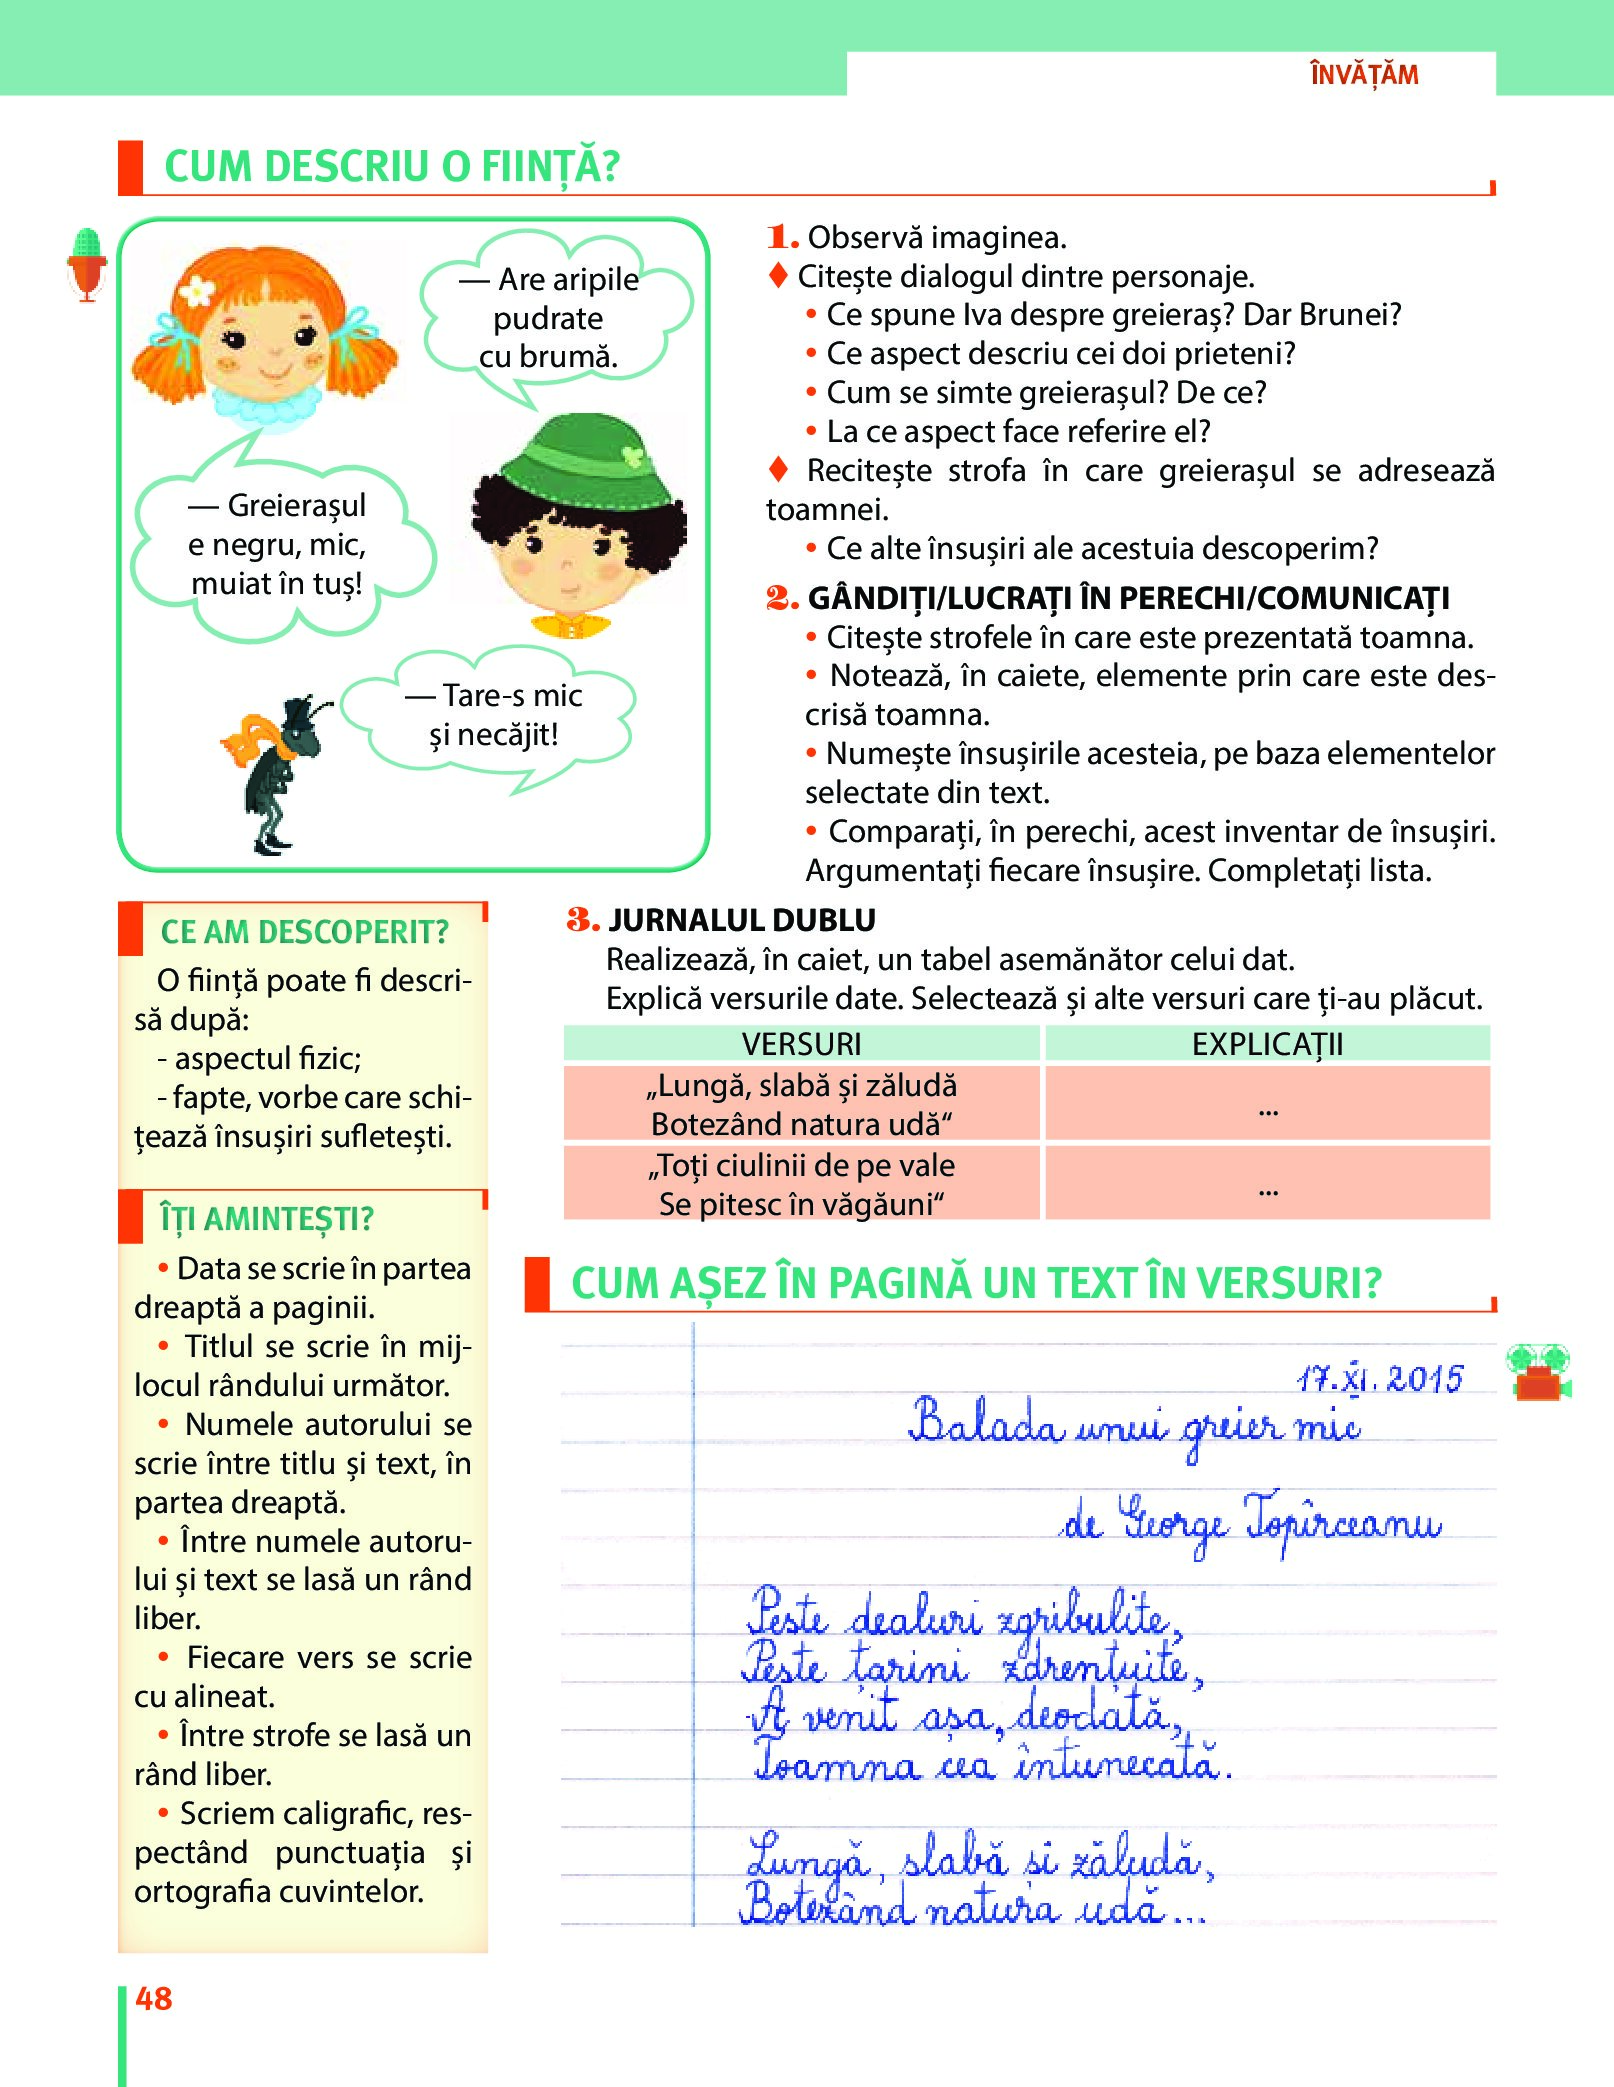 ÎNVĂȚĂM
CUM DESCRIU O FIINȚĂ?
— Are aripile
pudrate
cu brumă.
— Greierașul
e negru, mic,
muiat în tuș!
— Tare-s mic
și necăjit!
1. Observă imaginea.
♦ Citește dialogul dintre personaje.
• Ce spune Iva despre greieraș? Dar Brunei?
• Ce aspect descriu cei doi prieteni?
• Cum se simte greierașul? De ce?
• La ce aspect face referire el?
♦ Recitește strofa în care greierașul se adresează
toamnei.
• Ce alte însușiri ale acestuia descoperim?
2. GÂNDIȚI/LUCRAȚI ÎN PERECHI/COMUNICAȚI
• Citește strofele în care este prezentată toamna.
• Notează, în caiete, elemente prin care este des-
crisă toamna.
• Numește însușirile acesteia, pe baza elementelor
selectate din text.
• Comparați, în perechi, acest inventar de însușiri.
Argumentați fiecare însușire. Completați lista.
CE AM DESCOPERIT?
O ființă poate fi descri-
să după:
- aspectul fizic;
- fapte, vorbe care schi-
țează însușiri sufletești.
ÎȚI AMINTEȘTI?
• Data se scrie în partea
dreaptă a paginii.
• Titlul se scrie în mij-
locul rândului următor.
• Numele autorului se
scrie între titlu și text, în
partea dreaptă.
• Între numele autoru-
lui și text se lasă un rând
liber.
• Fiecare vers se scrie
cu alineat.
• Între strofe se lasă un
rând liber.
• Scriem caligrafic, res-
pectând punctuația și
ortografia cuvintelor.
3. JURNALUL DUBLU
Realizează, în caiet, un tabel asemănător celui dat.
Explică versurile date. Selectează și alte versuri care ți-au plăcut.
VERSURI EXPLICAȚII
„Lungă, slabă și zăludă
Botezând natura udă“
...
„Toți ciulinii de pe vale
Se pitesc în văgăuni“
...
CUM AȘEZ ÎN PAGINĂ UN TEXT ÎN VERSURI?
17.XI.2015
Balada unui greier mic
de George Topîrceanu
Peste dealuri zgribulite,
Peste țarini zdrențuite,
A venit așa, deodată,
Toamna cea întunecată.
Lungă, slabă și zăludă,
Botezând natura udă...
48